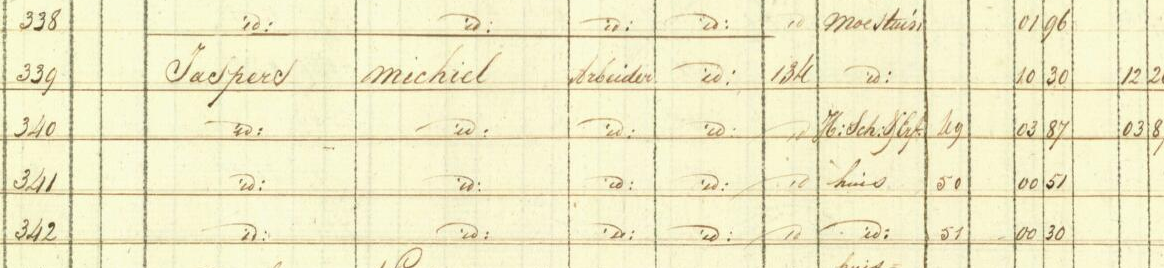 338 id: id: id: id: id Moestuin 01 96
339 Jaspers Michiel Arbeider id: 134 id: 10 30 12 2
340 id: id: id: id: id H: Sch: & Erf 49 03 87 03 8
341 id: id: id: id: id huis 50 00 51
342 id: id: id: id: id id: 51 00 30
huis